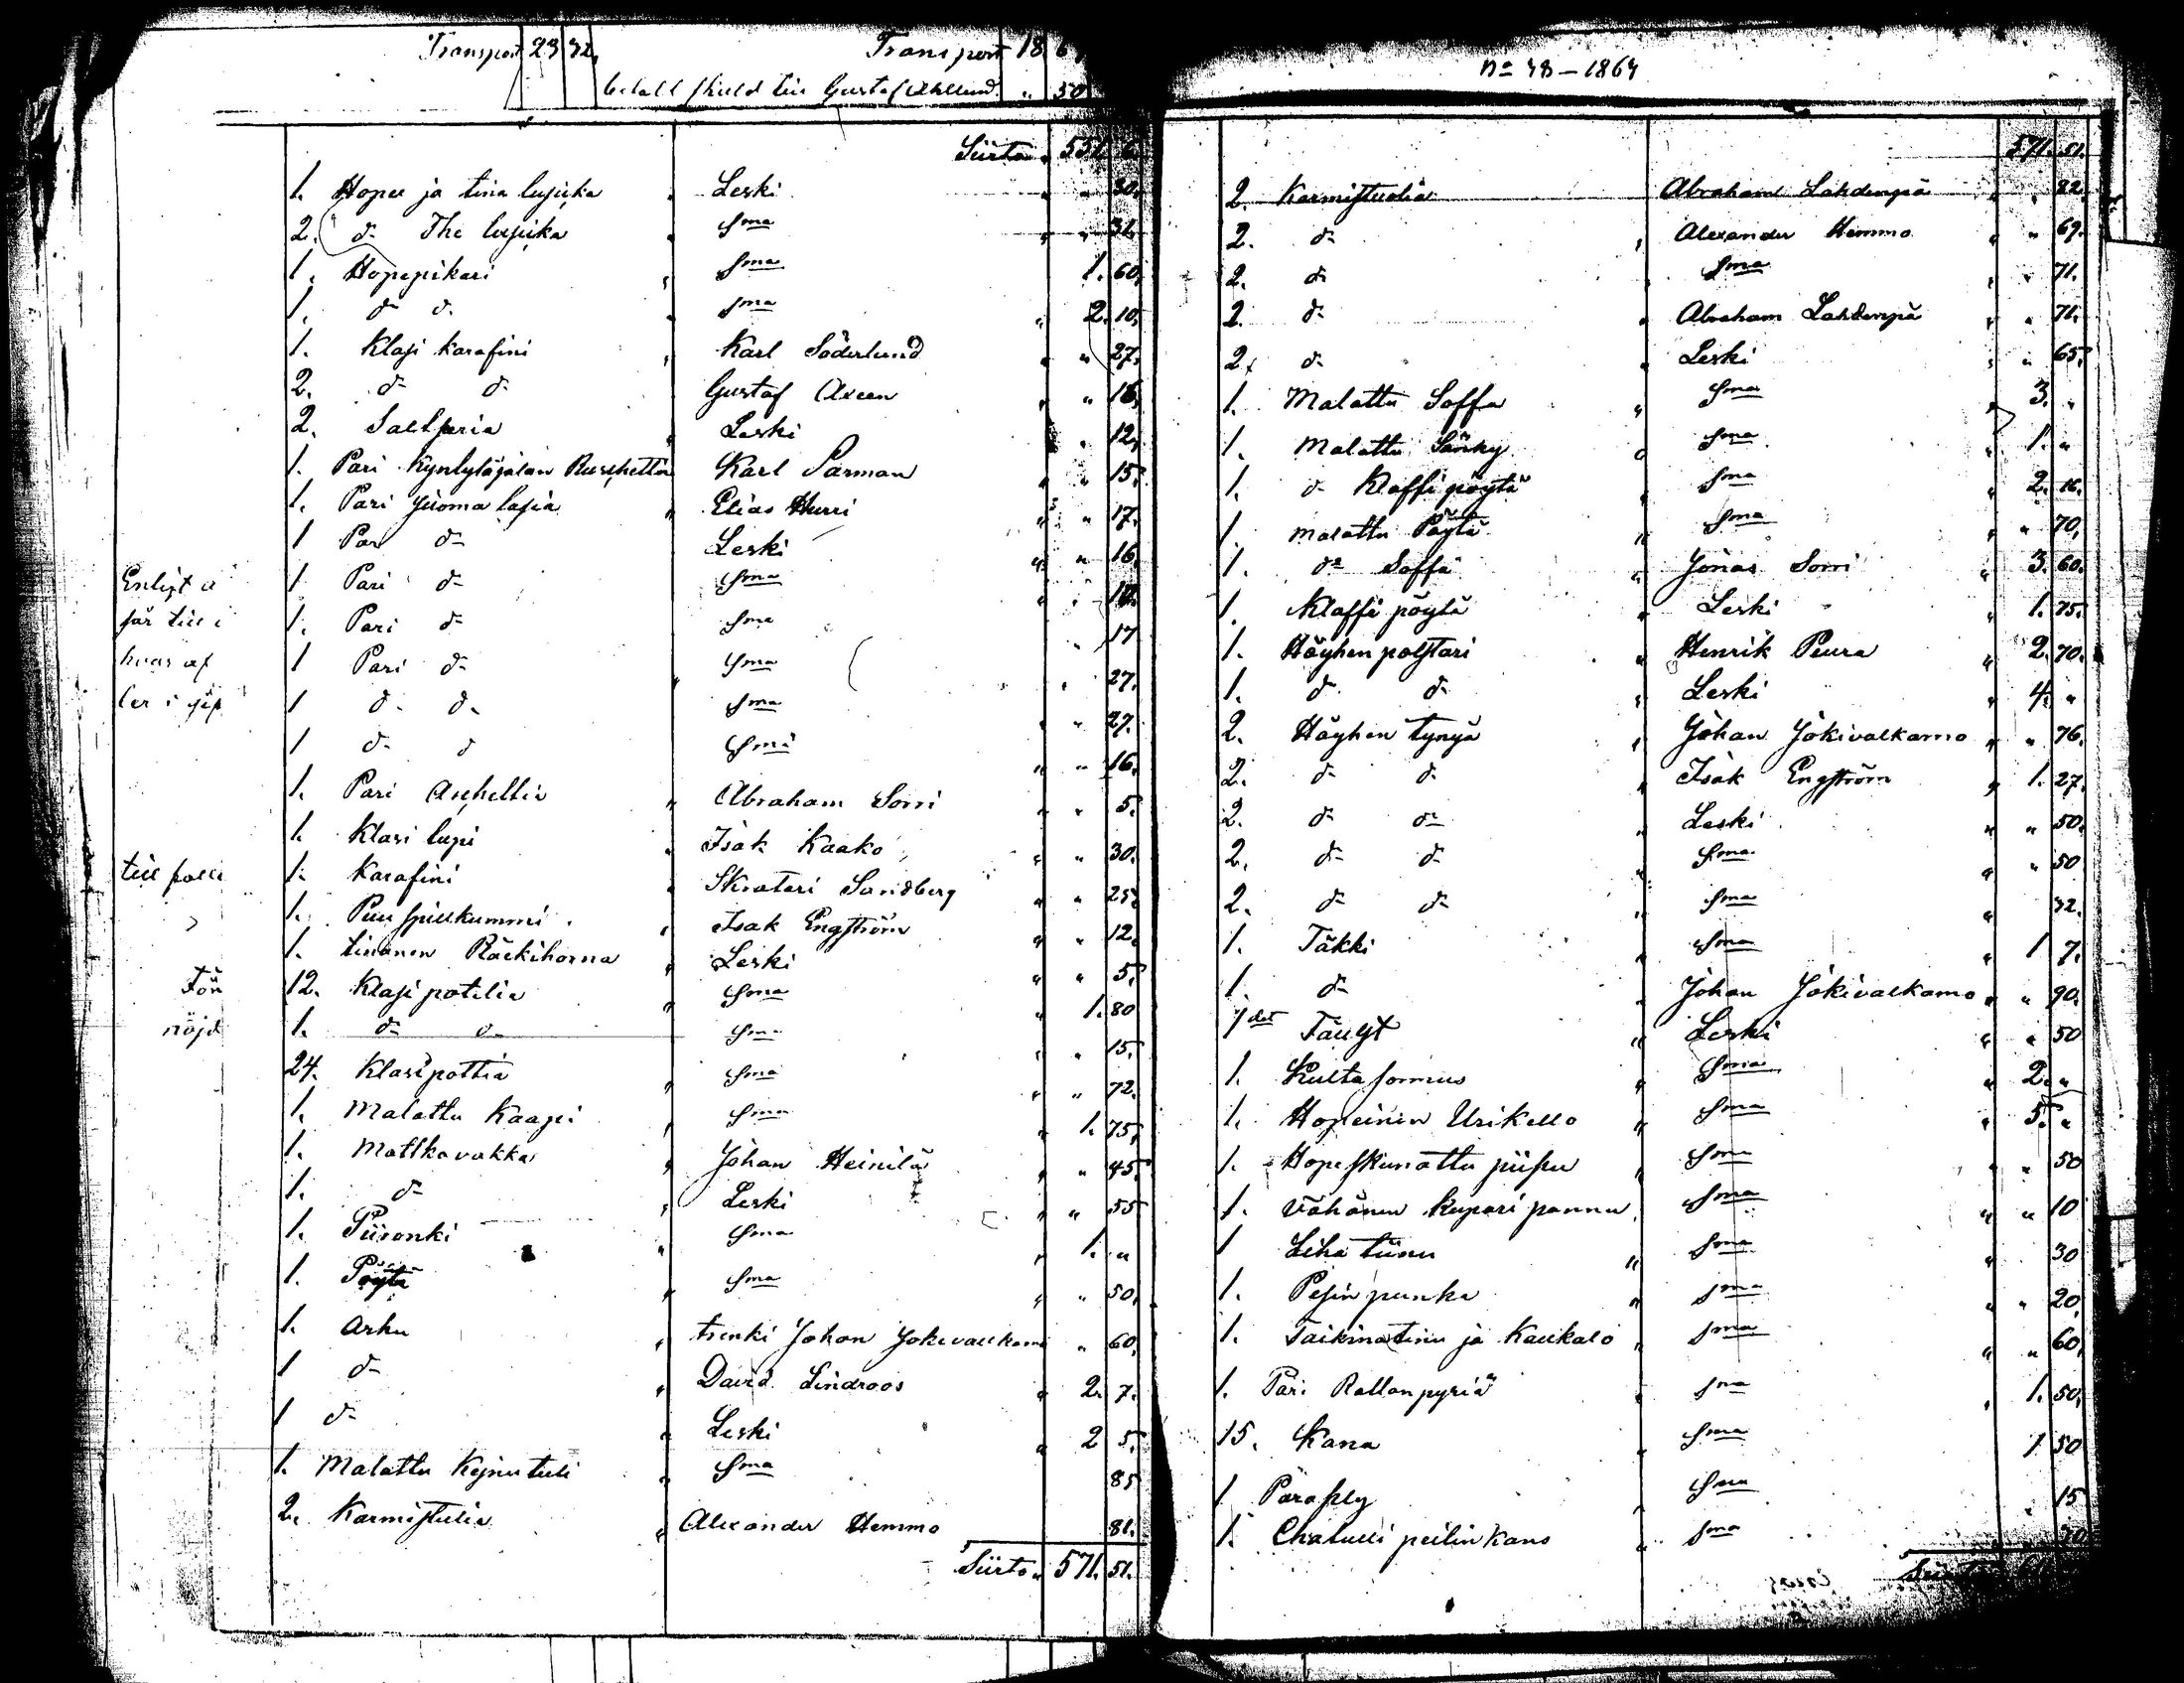 Transport 23 32.
Transport 18 6
betalt skuld till Gustaf " 50
Siirto " 551. 6.
1. Hopea ja tina lusika " Leski " " 30.
2. d- The lusika " Sma " " 31.
1. Hopepikari " Sma 1. 60.
1. d- d- " Sma " 2. 10.
1. Klasi karafini " Karl Söderlund " " 27.
2. d- d- Gustaf Axeen " " 16.
2. Saltseria " Leski " 12.
1. Pari Karl Sarman " " 15.
1. Pari juoma lasia " Elias Hurri " " 17.
1 Par d- Leski " " 16.
1 Pari d- Sma "
1. Pari d- Sma 17
1 Pari d- Sma " 27.
1 d- d- Sma " 27.
1 d- d Sma " " 16.
1. Pari Aschettia " Abraham Sorri " " 5.
1. Klasi " Isak Kaako " " 30.
1. Karafini " Sandberg " " 25.
1. Puu spilkummi " Isak Engström " " 12.
1. tinanen " Leski " " 5.
12. Klasi potelia " Sma " 1. 80
1. d- d- Sma " " 15.
24. Klasipottia " Sma " " 72.
1. Malattu Kaapi " Sma " 1. 75.
1. Mattkavakka " Johan Heinilä " " 45
1. d- " Leski " " 55
1. Piironki " Sma " 1. "
1. Pöytä " Sma " " 50.
1. Arku " trenki Johan Jokivalkama " 60.
1 d- " David Lindroos " 2. 7.
1 d- " Leski " 2 5.
1. Malattu Keinutuli " Sma 85
2. Karmistulia " Alexander Hemmo 81.
Siirto " 571. 51.
Enligt
får till
hvar af
till
nöjd
No 48 - 1864
571. 51.
2. Karmistuolia Abraham Lahdenpää " " 82.
2. d- " Alexander Hemmo " " 69.
2. d- " Sma " " 71.
2. d- " Abraham Lahdenpä " " 71.
2. d- " Leski " " 65.
1. Malattu Soffa " Sma " 3. "
1. Malattu Sänky " Sma " 1. "
1. d- Klaffi pöytä " Sma " 2. 16.
1. Malattu Pöytä " Sma " " 70,
1. d- Soffa " Jonas Sorri " 3. 60.
1. Klaffi pöytä " Leski " 1. 75.
1. Höyhen polstari " Henrik Peura " 2. 70.
1. d- d- " Leski " 4. "
2. Höyhen tynyä " Johan Jokivalkamo " " 76.
2. d- d- " Isak Engström " 1. 27.
2. d- d- " Leski " " 50.
2. d- d- " Sma " " 50
2. d- d- " Sma " 32.
1. Täkki " Sma " 1 7.
1 d- " Johan Jokivalkamo " " 90.
1 det Täckyt " Leski " " 50
1. Kulta sormus " Sma " 2. "
1. Hopeinen Urikello " Sma " 5. "
1. Hopeskunattu piipu " Sma " " 50
1. Vähänen kupari pannu " Sma " " 10
1 Liha tiinu " Sma " 30
1. Pesin punka " Sma " " 20
1. Taikinatinu ja Kaukalo " Sma " " 60,
1. Pari Rattanpyriä " Sma " 1. 50,
15. Kana " Sma 1 50
1 Paraply " Sma " 15
1. Chatulli peilin kans " Sma " 70
Siirto